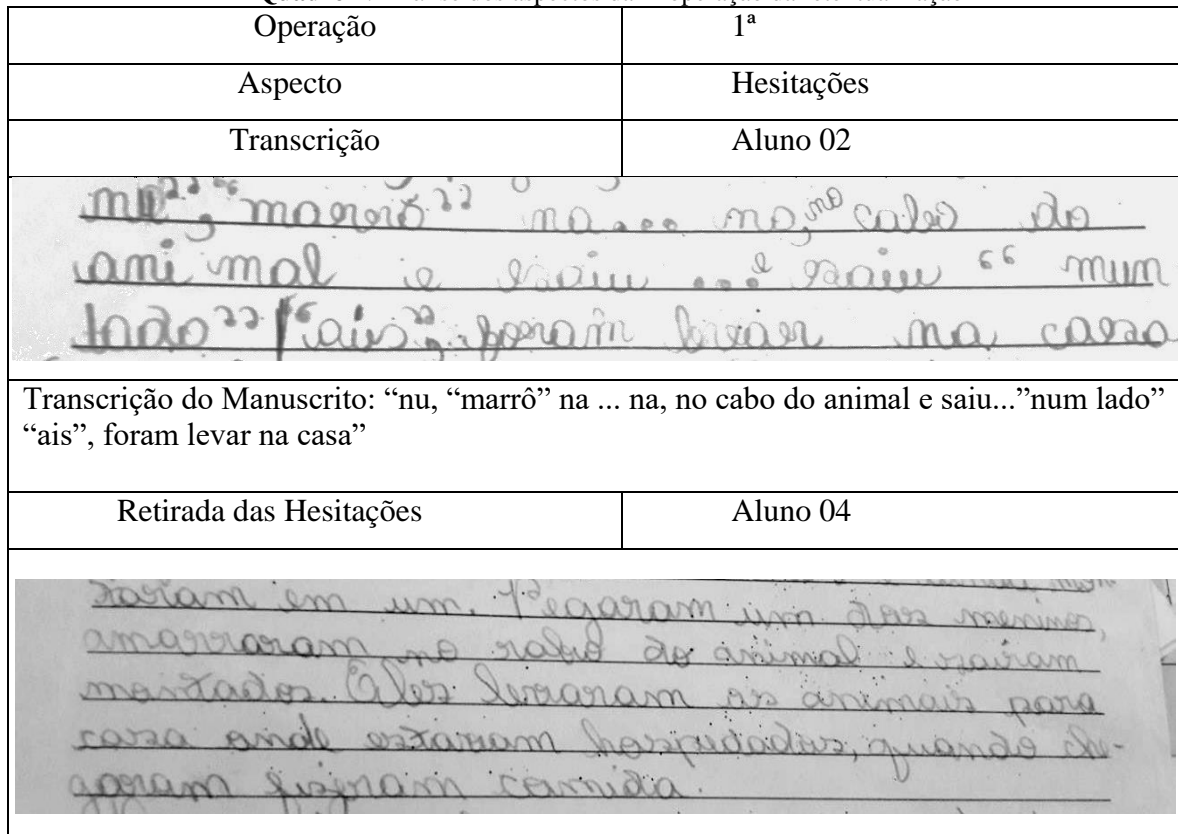 Operação 1ª
Aspecto Hesitações
Transcrição Aluno 02
“marrô” na... na, no cabo do
ani mal e saiu ...e saiu “mun
tado” “ais”, foram levar na casa
Transcrição do Manuscrito: “nu, “marrô” na ... na, no cabo do animal e saiu...”num lado”
“ais”, foram levar na casa”
Retirada das Hesitações Aluno 04
taram em um. Pegaram um dos menino,
amarraram no rabo do animal e sairam
montados. Eles levaram os animais para
casa onde estavam hospedados, quando che-
garam fizeram comida.